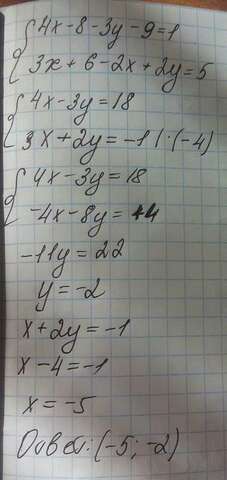 {4x-8-3y-9=1
{3x+6-2x+2y=5
{4x-3y=18
{3x+2y=-1 |·(-4)
{4x-3y=18
{-4x-8y=44
-11y=22
y=-2
x+2y=-1
x-4=-1
x=-5
Ответ: (-5; -2)